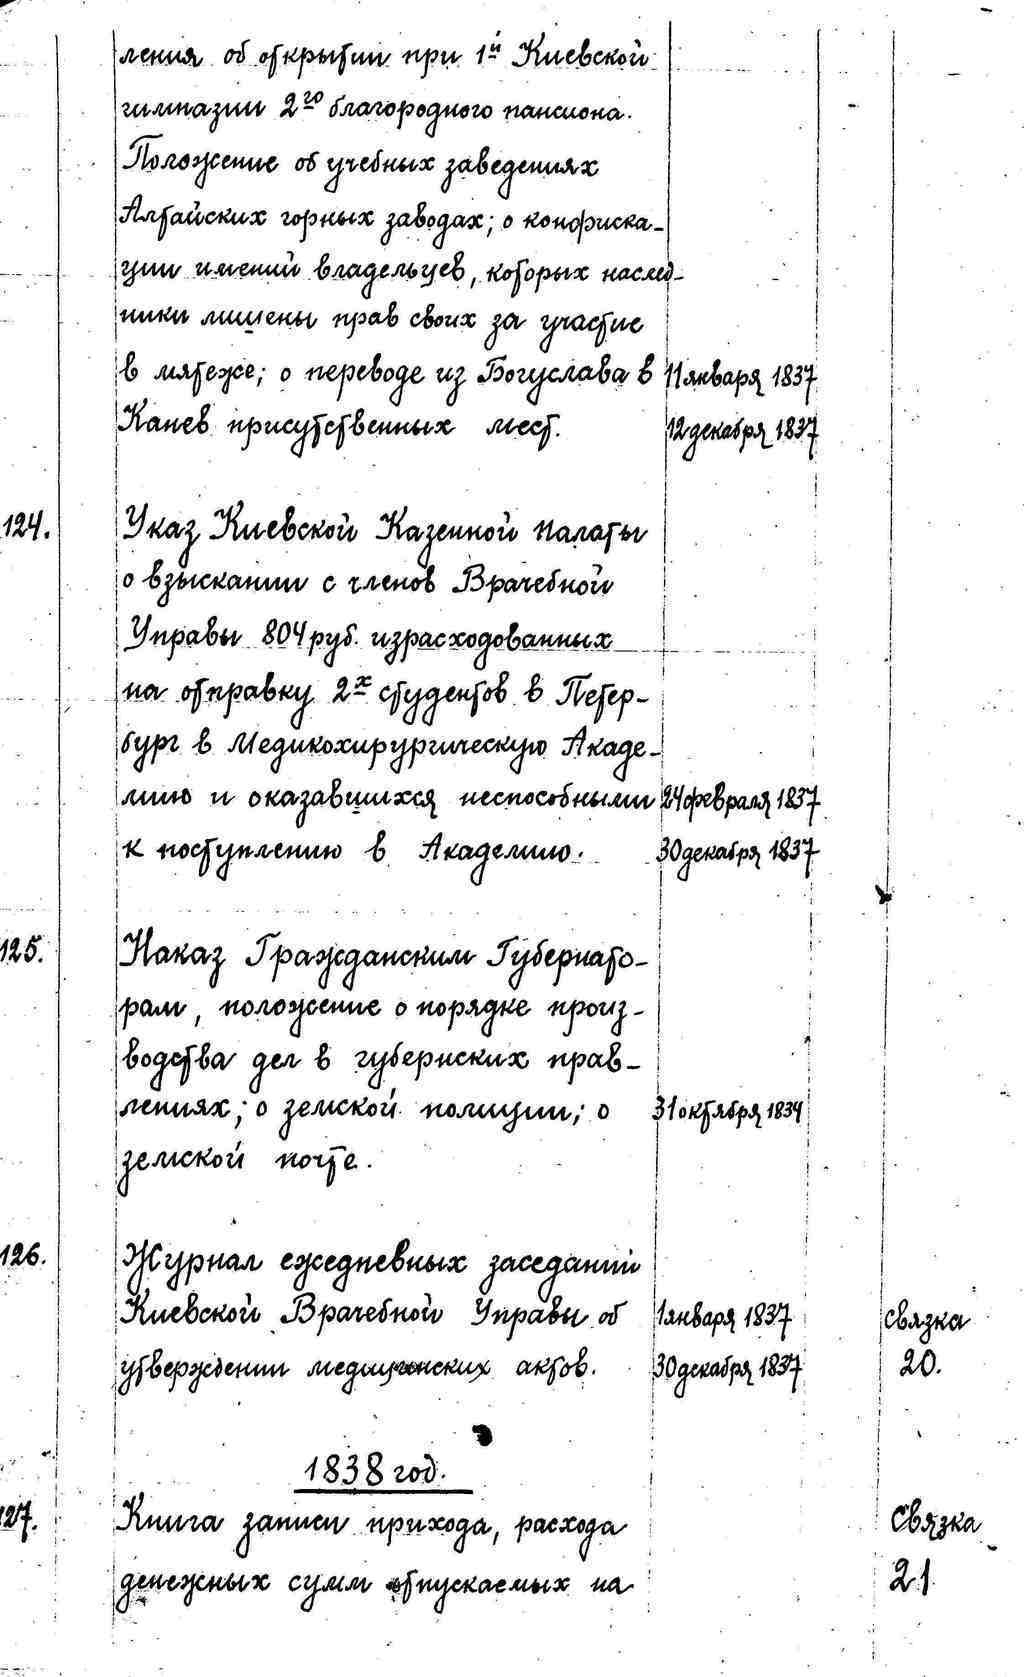 ления об открытии при 1й Киевской
гимназии 2го благородного пансиона.
Положение об учебных заведениях
Алтайских горных заводах; о конфиска-
ции имений владельцев, которых наслед-
ники лишены прав своих за участие
в мятеже; о переводе из Богуслава в 11 января 1837
Канев присутственных мест. 12 декабря 1837
124. Указ Киевской Казенной палаты
о взыскании с членов Врачебной
Управы 804 руб. израсходованных
на отправку 2х студентов в Петер-
бург в Медикохирургическую Акаде-
мию и оказавшихся неспособными 24 февраля 1837
к поступлению в Академию. 30 декабря 1837
125. Наказ Гражданским Губернато-
рам, положение о порядке произ-
водства дел в губернских прав-
лениях; о земской полиции; о 31 октября 1834
земской почте.
126. Журнал ежедневных заседаний
Киевской Врачебной Управы об 1 января 1837 связка
утверждении медицинских актов. 30 декабря 1837 20.
1838 год.
127. Книга записи прихода, расхода Связка
денежных сумм отпускаемых на 21